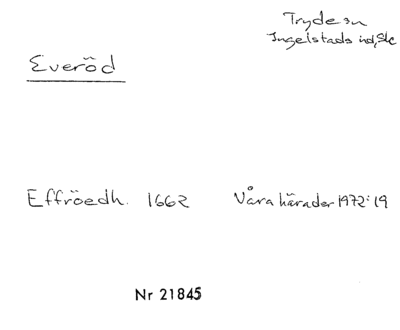 Tryde sn
Ingelstads hd, Sk
Everöd
Effröedh. 1662 Våra härader 1972:19
Nr 21845